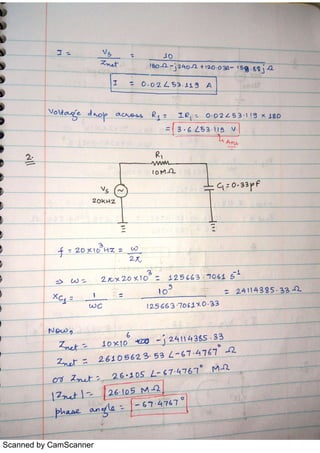 I = Vs / Znet = 10 / 180Ω - j240Ω + 120.03Ω - 159.88j Ω
I = 0.02∠53.119 A
Voltage drop across R1 = IR1 = 0.02∠53.119 × 180
= 3.6∠53.119 V
Ans
2.
R1
10MΩ
Vs
20KHZ
C1 = 0.33pF
f = 20×10³HZ = ω / 2π
⇒ ω = 2π×20×10³ = 125663.7061 s⁻¹
XC1 = 1 / ωC = 10⁹ / 125663.7061×0.33 = 24114385.33Ω
Now,
Znet = 10×10⁶ - j24114385.33
Znet = 26105623.53∠-67.4767° Ω
or Znet = 26.105∠-67.4767° MΩ
|Znet| = 26.105 MΩ
phase angle = -67.4767°
Scanned by CamScanner